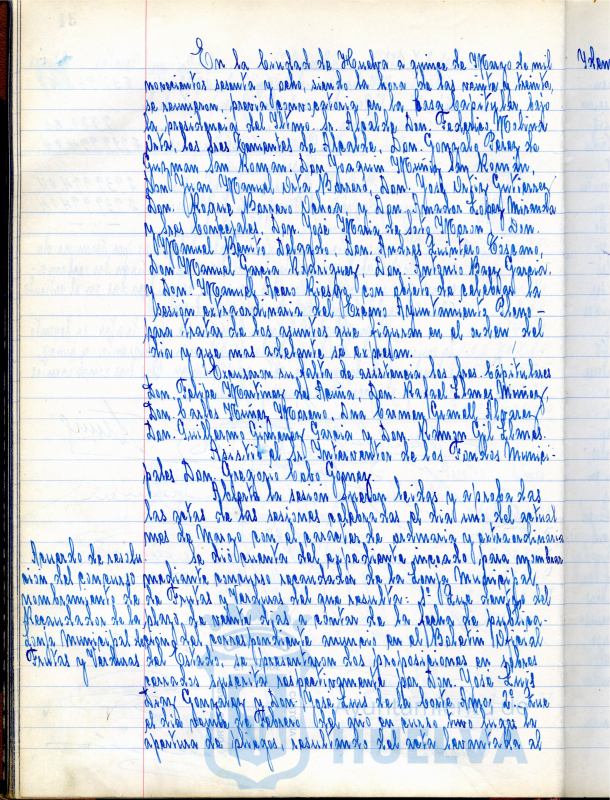 En la Ciudad de Huelva a quince de Marzo de mil
novecientos sesenta y ocho, siendo la hora de las veinte y treinta,
se reunieron, previa convocatoria en la Casa Capitular, bajo
la presidencia del Iltmo. Sr. Alcalde Don Federico Molina
Orta, los Sres Tenientes de Alcalde, Don Gonzalo Perez de
Guzman San Román, Don Joaquin Muñiz San Román,
Don Juan Manuel Orta Borrero, Don José Ortiz Gutierrez
Don Roque Barrero Ochoa, y Don Amador López Miranda
y Sres Concejales, Don José Maria de Soto Moron, Don
Manuel Benito Delgado, Don Andres Quintero Toscano,
Don Manuel Garcia Rodriguez, Don Antonio Baez Garcia
y Don Manuel Riesgo, con objeto de celebrar la
Sesión extraordinaria del Excmo Ayuntamiento Pleno-
para tratar de los asuntos que figuran en el orden del
dia y que mas adelante se expresan.
Excusaron su falta de asistencia los Sres Capitulares
Don Felipe Martinez de Acuña, Don Rafael Llanes Muñoz,
Don Carlos Núñez Moreno, Dña Carmen Alvarez
Don Guillermo Gimenez Garcia y Don Ramon Gil Llanes.
Asistio el Sr Interventor de los Fondos Munici-
pales Don Gregorio Cabo Gomez
Abierta la sesión fueron leidas y aprobadas
las actas de las sesiones celebradas el dia uno del actual
mes de Marzo con el caracter de ordinaria y extraordinaria
Acuerdo de resolu
cion del concurso
nombramiento de
Recaudador de la
Lonja Municipal de
Frutas y Verduras
Se dio cuenta del expediente incoado para nombrar
mediante concurso recaudador de la Lonja Municipal
de Frutas y Verduras del que resulta: 1º Que dentro del
plazo de veinte dias a contar de la fecha de publica-
cion del correspondiente anuncio en el Boletin Oficial
del Estado, se presentaron dos proposiciones en sobres
cerrados suscrita respectivamente por Don José Luis
Diaz Gonzalez y Don José Luis de la Corte Amo, 2º Que
el dia de Febrero del año en curso tuvo lugar la
apertura de pliegos, resultando del acta levantada al
Iden
HUELVA